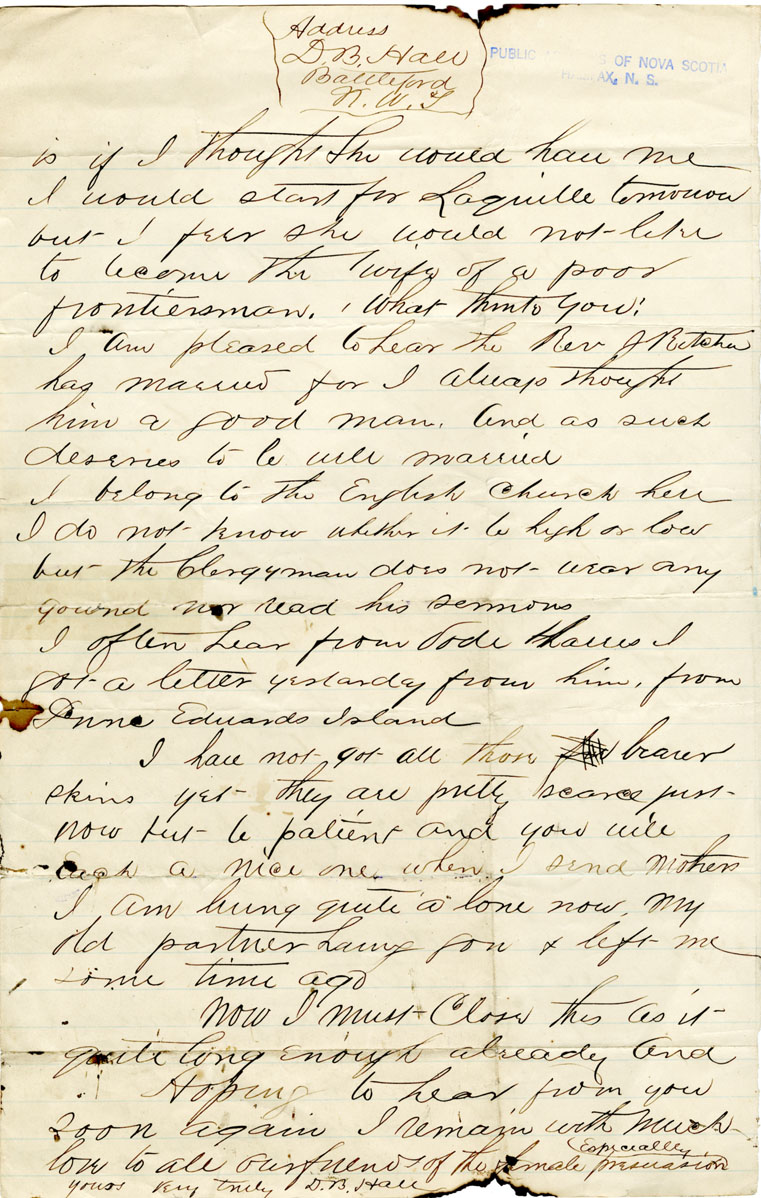 Address
D. B. Hall
Battleford
N. W. T
PUBLIC OF NOVA SCOTIA
HALIFAX, N. S.
is if I thought she would have me
I would start for Lequille tomorrow
but I feer she would not like
to become the wife of a poor
frontiersman. What think you!
I am pleased to hear the Rev J Ritchie
has married for I always thought
him a good man. And as such
deserves to be well married
I belong to the English Church here
I do not know whether it be high or low
but the Clergyman does not wear any
gownd nor read his sermons
I often hear from Harris I
got a letter yestarday from him, from
Prince Edwards Island
I have not got all those bearer
skins yet they are pretty scarce just
now but be patient and you will
each a nice one when I send Mothers
I am living quite a lone now. My
old partner having gon & left me
some time ago
Now I must Close this as it
quite long enough already And
Hoping to hear from you
soon again I remain with much
love to all our friends of the female presuasion
Especially
yours very truly D. B. Hall